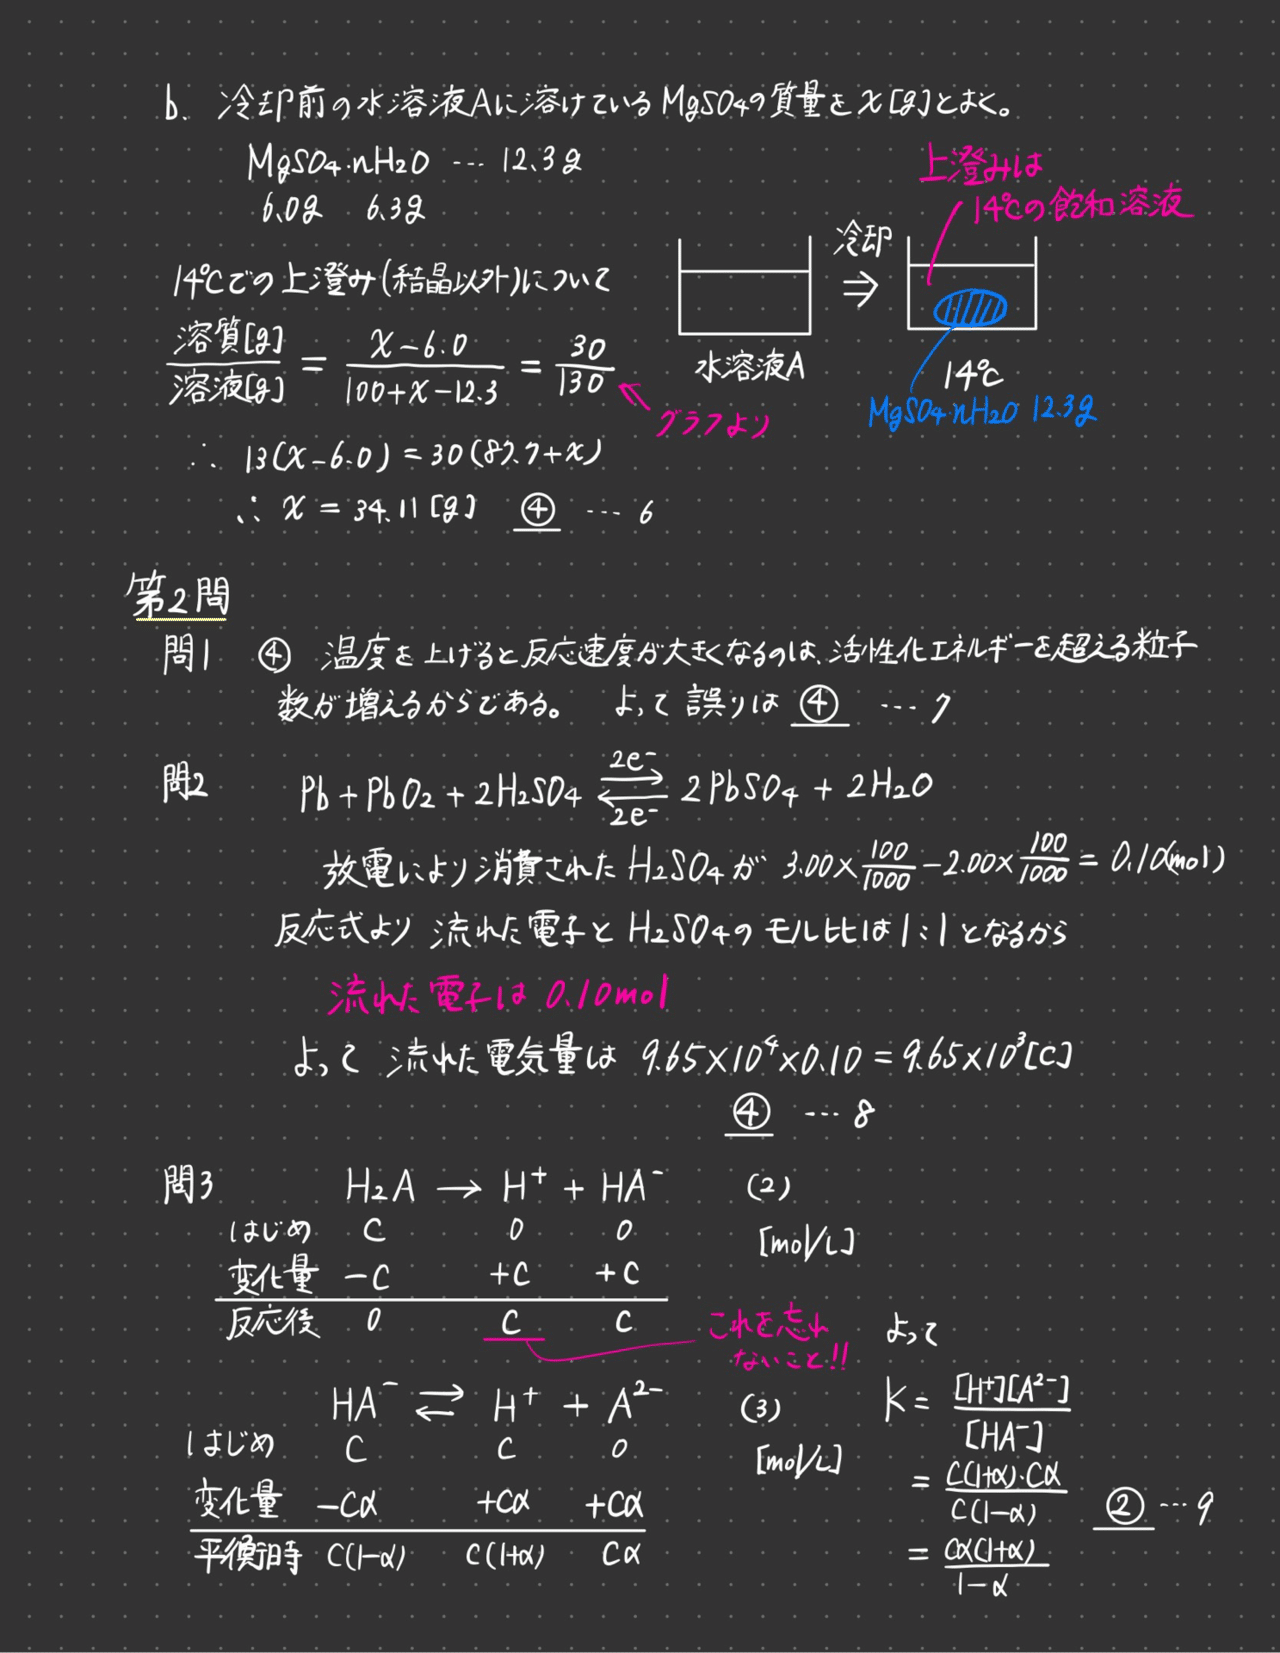 b. 冷却前の水溶液Aに溶けているMgSO4の質量をx[g]とおく。
MgSO4・nH2O … 12.3g
6.0g 6.3g
上澄みは
14℃の飽和溶液
冷却
⇒
水溶液A
14℃
MgSO4・nH2O 12.3g
14℃での上澄み(結晶以外)について
溶質[g]/溶液[g] = (x-6.0)/(100+x-12.3) = 30/130
グラフより
∴ 13(x-6.0) = 30(87.7+x)
∴ x = 34.11[g] ④ … 6
第2問
問1 ④ 温度を上げると反応速度が大きくなるのは、活性化エネルギーを超える粒子
数が増えるからである。 よって誤りは ④ … 7
問2 Pb + PbO2 + 2H2SO4 ⇄ 2PbSO4 + 2H2O
2e-
2e-
放電により消費されたH2SO4が 3.00×100/1000 - 2.00×100/1000 = 0.10(mol)
反応式より 流れた電子とH2SO4のモル比は1:1となるから
流れた電子は 0.10mol
よって 流れた電気量は 9.65×10⁴×0.10 = 9.65×10³[C]
④ … 8
問3 H2A → H⁺ + HA⁻ (2)
はじめ C 0 0 [mol/L]
変化量 -C +C +C
反応後 0 C C
これを忘れ
ないこと!!
HA⁻ ⇄ H⁺ + A²⁻ (3)
はじめ C C 0 [mol/L]
変化量 -Cα +Cα +Cα
平衡時 C(1-α) C(1+α) Cα
よって
K = [H⁺][A²⁻]/[HA⁻]
= C(1+α)・Cα/C(1-α)
= Cα(1+α)/1-α
② … 9